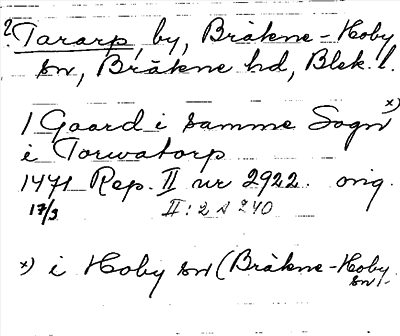 ? Tararp, by, Bräkne-Hoby
sn, Bräkne hd, Blek. l.
1 Gaard i samme Sogn x)
i Torwatorp
1471 Rep. II nr 2922. orig.
17/3 II: 2 s 240
x) i Hoby sn (Bräkne-Hoby
sn).